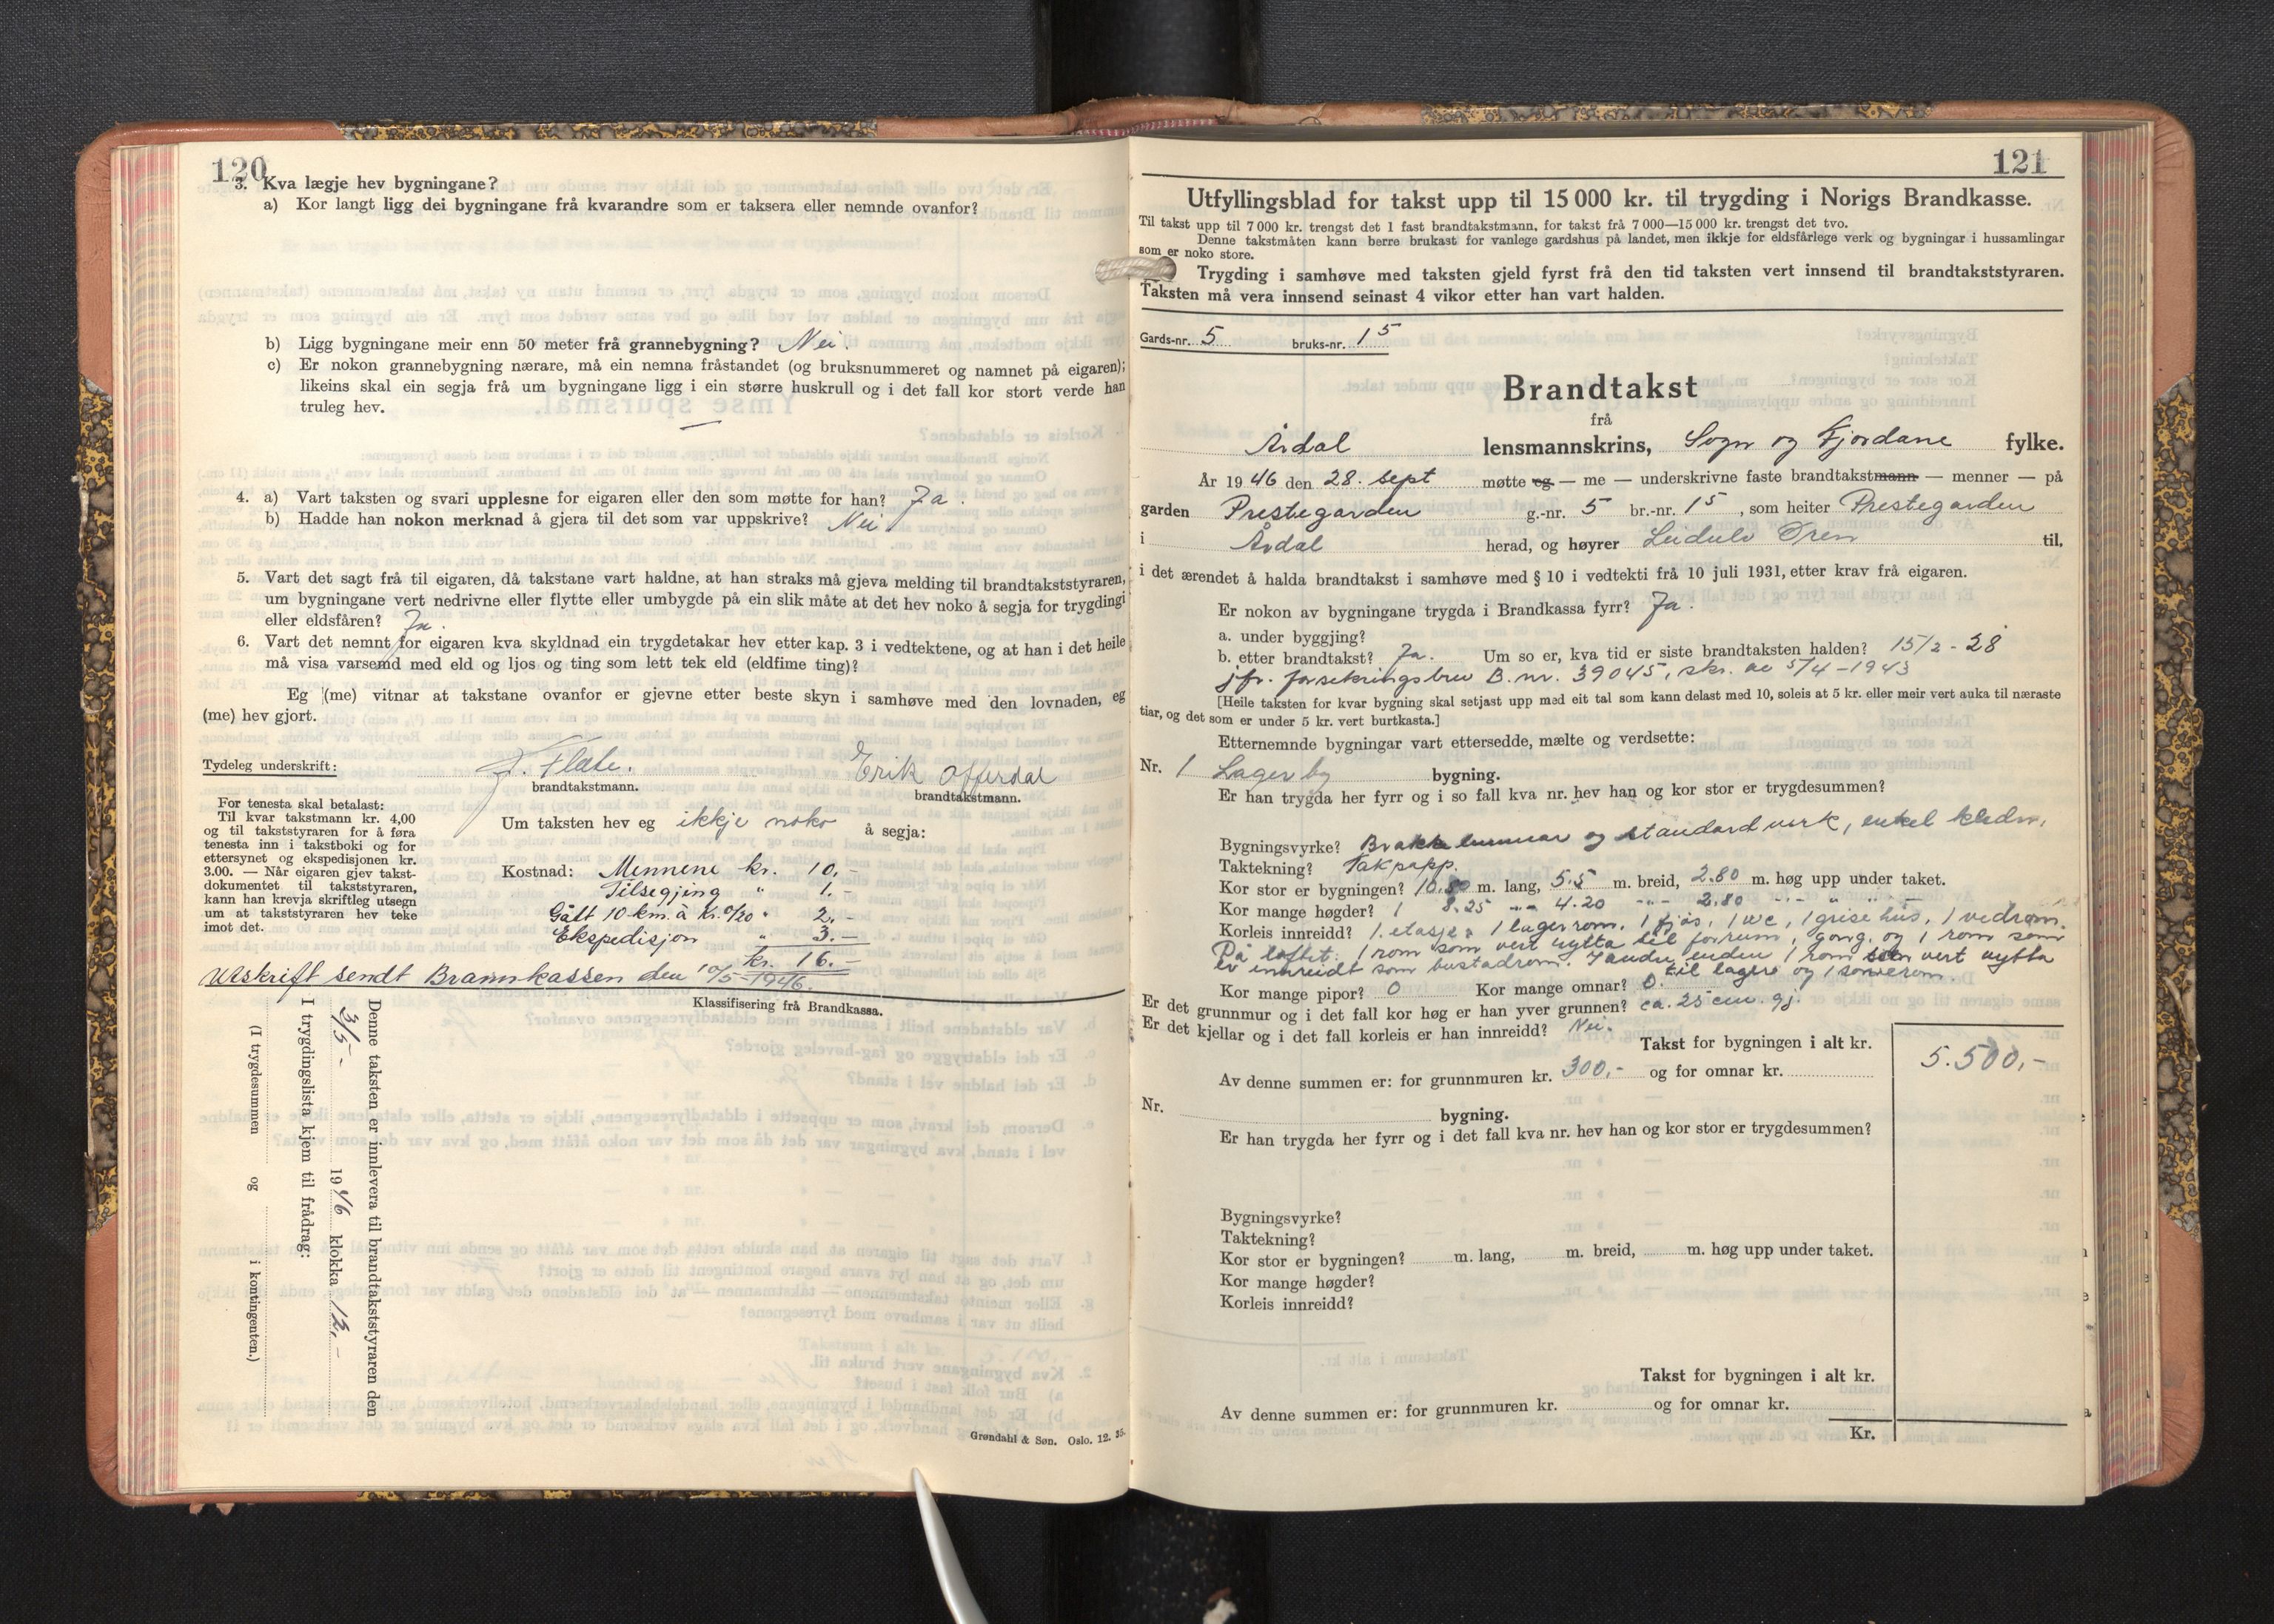 120
3. Kva lægje hev bygningane?
a) Kor langt ligg dei bygningane frå kvarandre som er taksera eller nemnde ovanfor?
b) Ligg bygningane meir enn 50 meter frå grannebygning? Nei.
c) Er nokon grannebygning nærare, må ein nemna fråstandet (og bruksnummeret og namnet på eigaren);
likeins skal ein segja frå um bygningane ligg i ein større huskrull og i det fall kor stort verde han
truleg hev.
—
4. a) Vart taksten og svari upplesne for eigaren eller den som møtte for han? Ja.
b) Hadde han nokon merknad å gjera til det som var uppskrive? Nei
5. Vart det sagt frå til eigaren, då takstane vart haldne, at han straks må gjeva melding til brandtakststyraren,
um bygningane vert nedrivne eller flytte eller umbygde på ein slik måte at det hev noko å segja for trygdingi
eller eldsfåren? Ja.
6. Vart det nemnt for eigaren kva skyldnad ein trygdetakar hev etter kap. 3 i vedtektene, og at han i det heile
må visa varsemd med eld og ljos og ting som lett tek eld (eldfime ting)?
Eg (me) vitnar at takstane ovanfor er gjevne etter beste skyn i samhøve med den lovnaden, eg
(me) hev gjort.
Tydeleg underskrift: J. Flate. Erik Offerdal
brandtakstmann. brandtakstmann.
For tenesta skal betalast:
Til kvar takstmann kr. 4,00
og til takststyraren for å føra
tenesta inn i takstboki og for
ettersynet og ekspedisjonen kr.
3.00. — Når eigaren gjev takst-
dokumentet til takststyraren,
kann han krevja skriftleg utsegn
um at takststyraren hev teke
imot det.
Um taksten hev eg ikkje noko å segja:
Kostnad: Mennene kr. 10,-
Tilsegjing " 1.-
Gått 10 km. à kr. 0/20 " 2.-
Ekspedisjon " 3.-
kr. 16.-
Utskrift sendt Brannkassen den 10/5-1946.
Klassifisering frå Brandkassa.
Denne taksten er innlevera til brandtakststyraren den
3/5- 1946 klokka 12.-
I trygdingslista kjem til frådrag:
(I trygdesummen og i kontingenten.)
Grøndahl & Søn. Oslo. 12. 35.
121
Utfyllingsblad for takst upp til 15 000 kr. til trygding i Norigs Brandkasse.
Til takst upp til 7 000 kr. trengst det 1 fast brandtakstmann, for takst frå 7 000—15 000 kr. trengst det tvo.
Denne takstmåten kann berre brukast for vanlege gardshus på landet, men ikkje for eldsfårlege verk og bygningar i hussamlingar
som er noko store.
Trygding i samhøve med taksten gjeld fyrst frå den tid taksten vert innsend til brandtakststyraren.
Taksten må vera innsend seinast 4 vikor etter han vart halden.
Gards-nr. 5 bruks-nr. 15
Brandtakst
frå
Årdal lensmannskrins, Sogn og Fjordane fylke.
År 1946 den 28. sept møtte eg — me — underskrivne faste brandtakstmann — menner — på
garden Prestegarden g.-nr. 5 br.-nr. 15, som heiter Prestegarden
i Årdal herad, og høyrer Leidulv Øren til,
i det ærendet å halda brandtakst i samhøve med § 10 i vedtekti frå 10 juli 1931, etter krav frå eigaren.
Er nokon av bygningane trygda i Brandkassa fyrr? Ja.
a. under byggjing?
b. etter brandtakst? Ja. Um so er, kva tid er siste brandtaksten halden? 15/2-28
jfr. forsekringsbrev B. nr. 39045, skr. av 5/4-1943
[Heile taksten for kvar bygning skal setjast upp med eit tal som kann delast med 10, soleis at 5 kr. eller meir vert auka til næraste
tiar, og det som er under 5 kr. vert burtkasta.]
Etternemnde bygningar vart ettersedde, mælte og verdsette:
Nr. 1 Lagerby bygning.
Er han trygda her fyrr og i so fall kva nr. hev han og kor stor er trygdesummen?
Bygningsvyrke? Brakkelemmar og standard verk, enkel kledn.
Taktekning? Takpapp.
Kor stor er bygningen? 10.80 m. lang, 5.5 m. breid, 2.80 m. høg upp under taket.
Kor mange høgder? 1 8.25 -"- 4.20 -"- 2.80 -"- " -"-
Korleis innreidd? 1. etasje: 1 lagerrom. 1 fjøs, 1 wc, 1 grisehus, 1 vedrom.
På loftet: 1 rom som vert nytta til forrum, gong, og 1 rom som
er innreidt som bustadrom. I andre enden 1 rom som vert nytta
til lager og 1 soverom.
Kor mange pipor? 0 Kor mange omnar? 0.
Er det grunnmur og i det fall kor høg er han yver grunnen? ca. 25 cm. gj.
Er det kjellar og i det fall korleis er han innreidd? Nei.
Takst for bygningen i alt kr. 5.500,-
Av denne summen er: for grunnmuren kr. 300,- og for omnar kr.
Nr. bygning.
Er han trygda her fyrr og i det fall kva nr. hev han og kor stor er trygdesummen?
Bygningsvyrke?
Taktekning?
Kor stor er bygningen? m. lang, m. breid, m. høg upp under taket.
Kor mange høgder?
Korleis innreidd?
Takst for bygningen i alt kr.
Av denne summen er: for grunnmuren kr. og for omnar kr.
Kr.